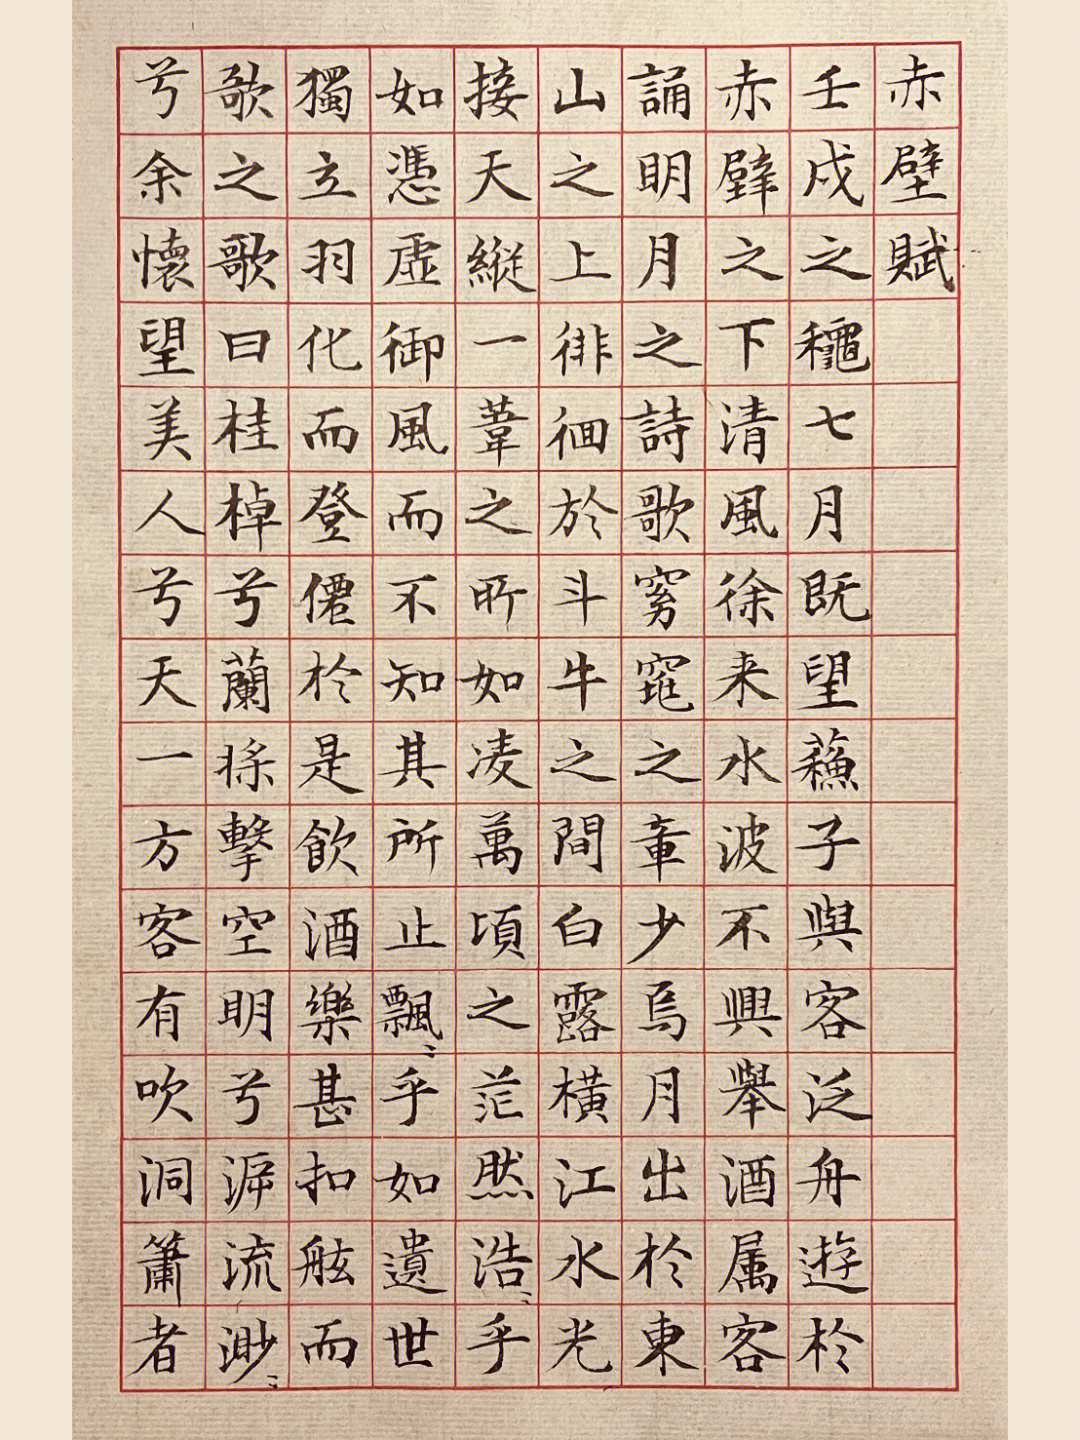 赤壁賦
壬戌之龝七月既望蘓子與客泛舟遊於
赤壁之下清風徐来水波不興舉酒属客
誦明月之詩歌窈窕之章少焉月出於東
山之上徘徊於斗牛之間白露橫江水光
接天縱一葦之所如凌萬頃之茫然浩〻乎
如憑虛御風而不知其所止飄〻乎如遺世
獨立羽化而登僊於是飲酒樂甚扣舷而
歌之歌曰桂棹兮蘭槳擊空明兮泝流渺〻
兮余懷望美人兮天一方客有吹洞簫者